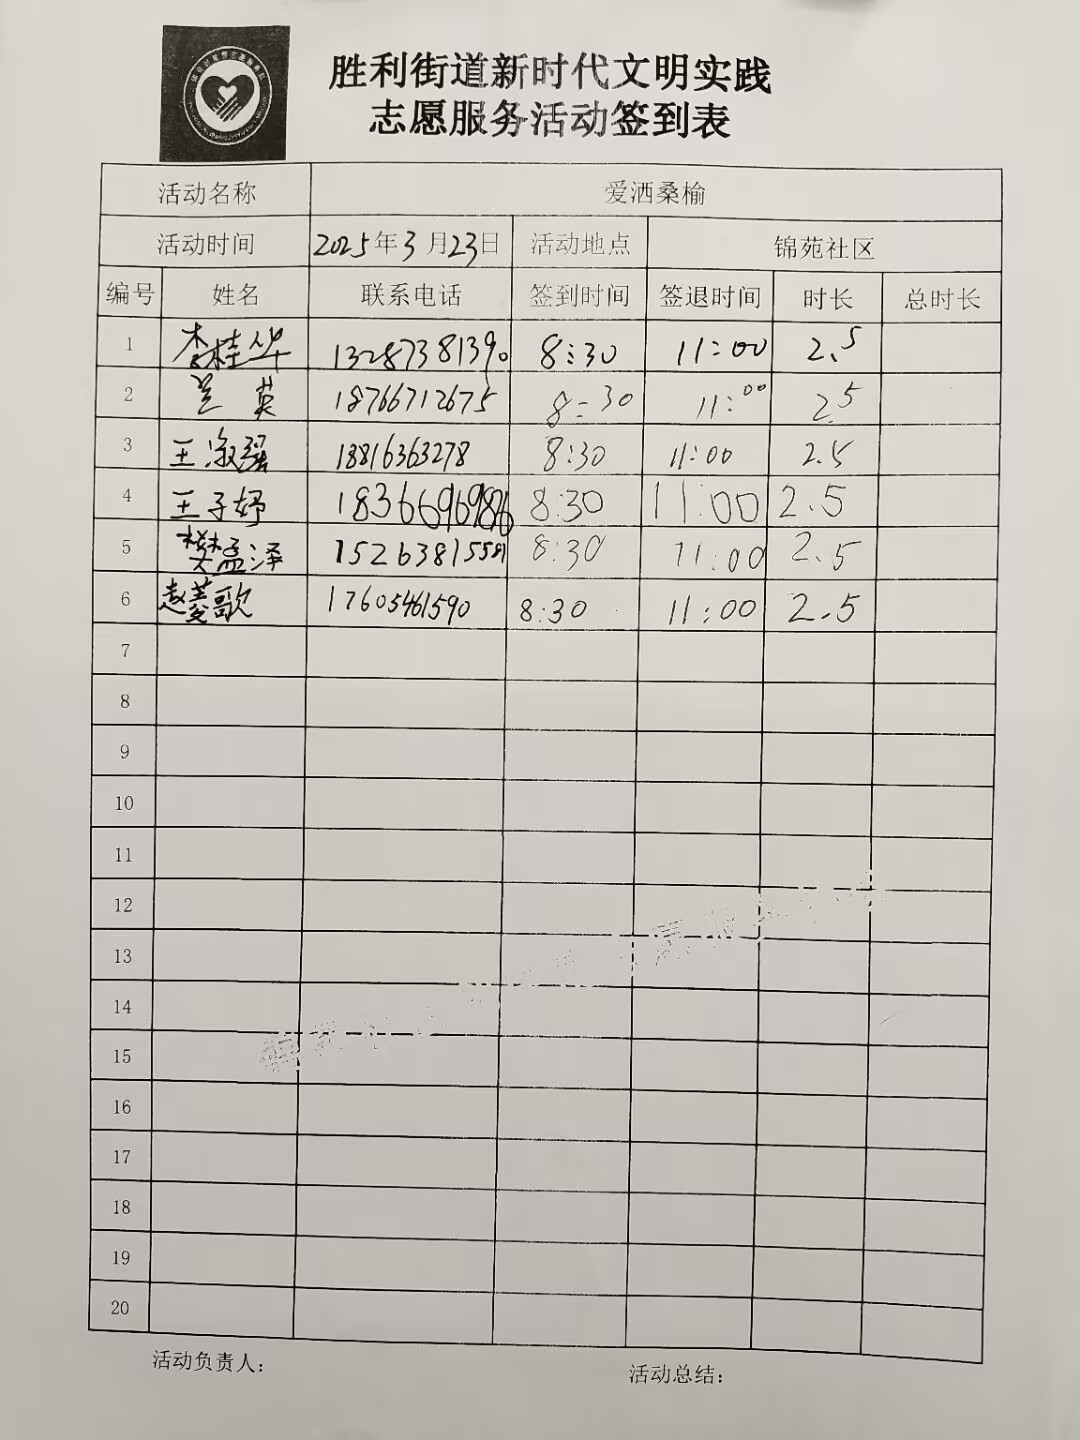 胜利街道新时代文明实践
志愿服务活动签到表
活动名称 爱洒桑榆
活动时间 2025年3月23日 活动地点 锦苑社区
编号 姓名 联系电话 签到时间 签退时间 时长 总时长
1 李桂华 13287381390 8:30 11:00 2.5
2 兰英 18766712675 8:30 11:00 2.5
3 王淑瑶 18816363278 8:30 11:00 2.5
4 王子妤 8:30 11:00 2.5
5 樊孟泽 15263815581 8:30 11:00 2.5
6 赵菱歌 17605461590 8:30 11:00 2.5
7
8
9
10
11
12
13
14
15
16
17
18
19
20
活动负责人: 活动总结: